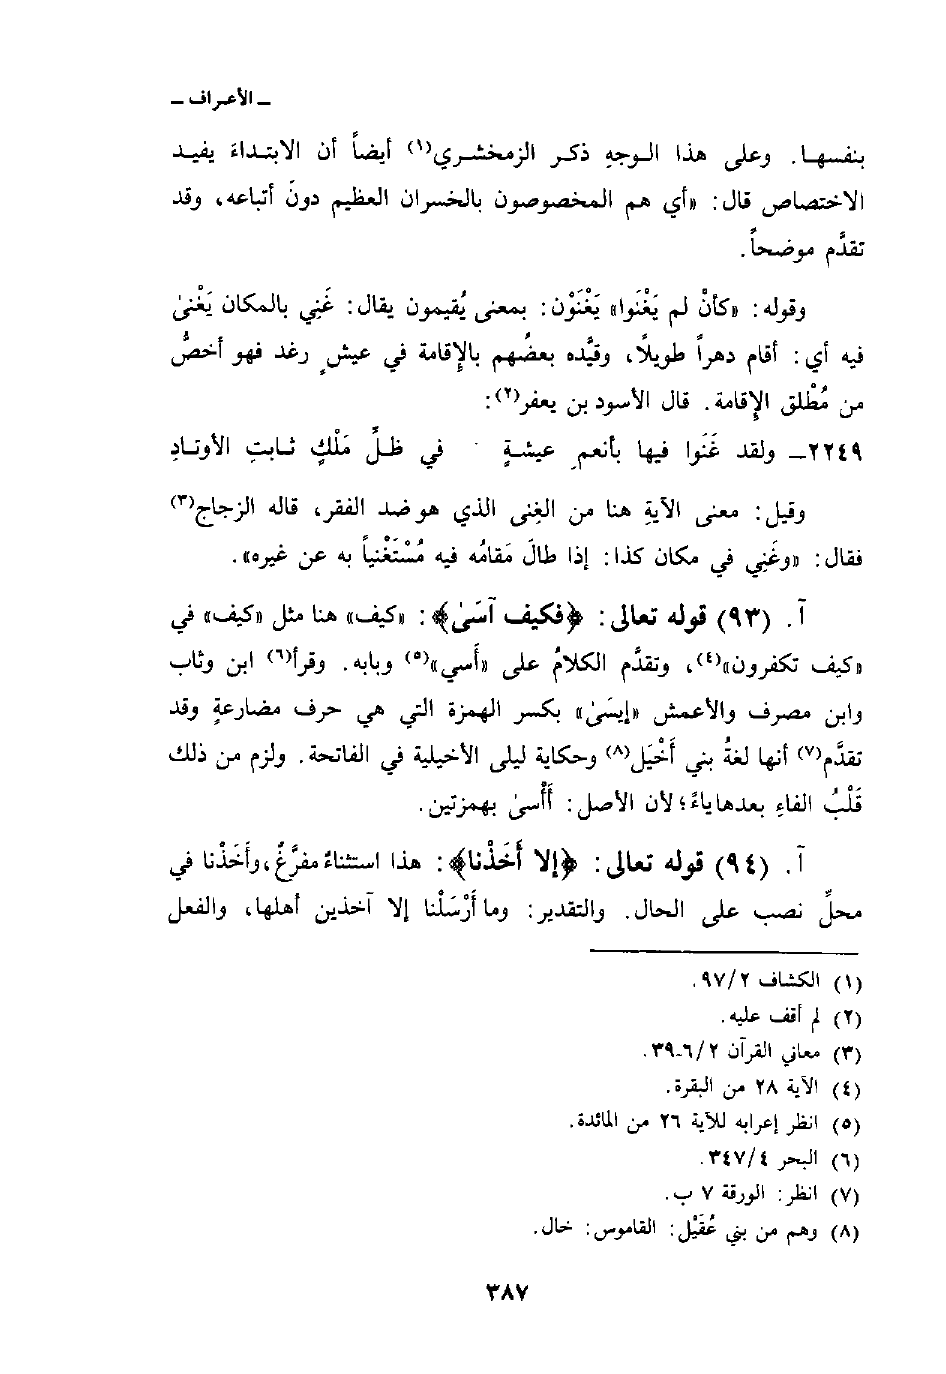 ـ الأعراف ـ
بنفسها. وعلى هذا الوجهِ ذكر الزمخشري(١) أيضاً أن الابتداءَ يفيد
الاختصاص قال: «أي هم المخصوصون بالخسران العظيم دونَ أتباعه، وقد
تقدَّم موضحاً.
وقوله: «كأنْ لم يَغْنَوا» يَغْنَوْن: بمعنى يُقيمون يقال: غَنِي بالمكان يَغْنىٰ
فيه أي: أقام دهراً طويلًا، وقيَّده بعضُهم بالإِقامة في عيشٍ رغد فهو أخصُّ
من مُطْلق الإِقامة. قال الأسود بن يعفر(٢):
٢٢٤٩ـ ولقد غَنَوا فيها بأنعمِ عيشةٍ في ظلِّ مَلْكٍ ثابتِ الأوتادِ
وقيل: معنى الآيةِ هنا من الغِنى الذي هو ضد الفقر، قاله الزجاج(٣)
فقال: «وغَنِي في مكان كذا: إذا طالَ مَقامُه فيه مُسْتَغْنياً به عن غيره».
آ. (٩٣) قوله تعالى: ﴿فكيف آسَىٰ﴾: «كيف» هنا مثل «كيف» في
«كيف تكفرون»(٤)، وتقدَّم الكلامُ على «أَسي»(٥) وبابه. وقرأ(٦) ابن وثاب
وابن مصرف والأعمش «إيسَىٰ» بكسر الهمزة التي هي حرف مضارعةٍ وقد
تقدَّم(٧) أنها لغةُ بني أَخْيَل(٨) وحكاية ليلى الأخيلية في الفاتحة. ولزم من ذلك
قَلْبُ الفاءِ بعدها ياءً؛ لأن الأصل: أَأْسىٰ بهمزتين.
آ. (٩٤) قوله تعالى: ﴿إلا أَخَذْنا﴾: هذا استثناءٌ مفرَّغٌ، وأَخَذْنا في
محلِّ نصب على الحال. والتقدير: وما أَرْسَلْنا إلا آخذين أهلها، والفعل
(١) الكشاف ٢/ ٩٧.
(٢) لم أقف عليه.
(٣) معاني القرآن ٢/ ٦ـ٣٩.
(٤) الآية ٢٨ من البقرة.
(٥) انظر إعرابه للآية ٢٦ من المائدة.
(٦) البحر ٤/ ٣٤٧.
(٧) انظر: الورقة ٧ ب.
(٨) وهم من بني عُقَيْل: القاموس: خال.
٣٨٧